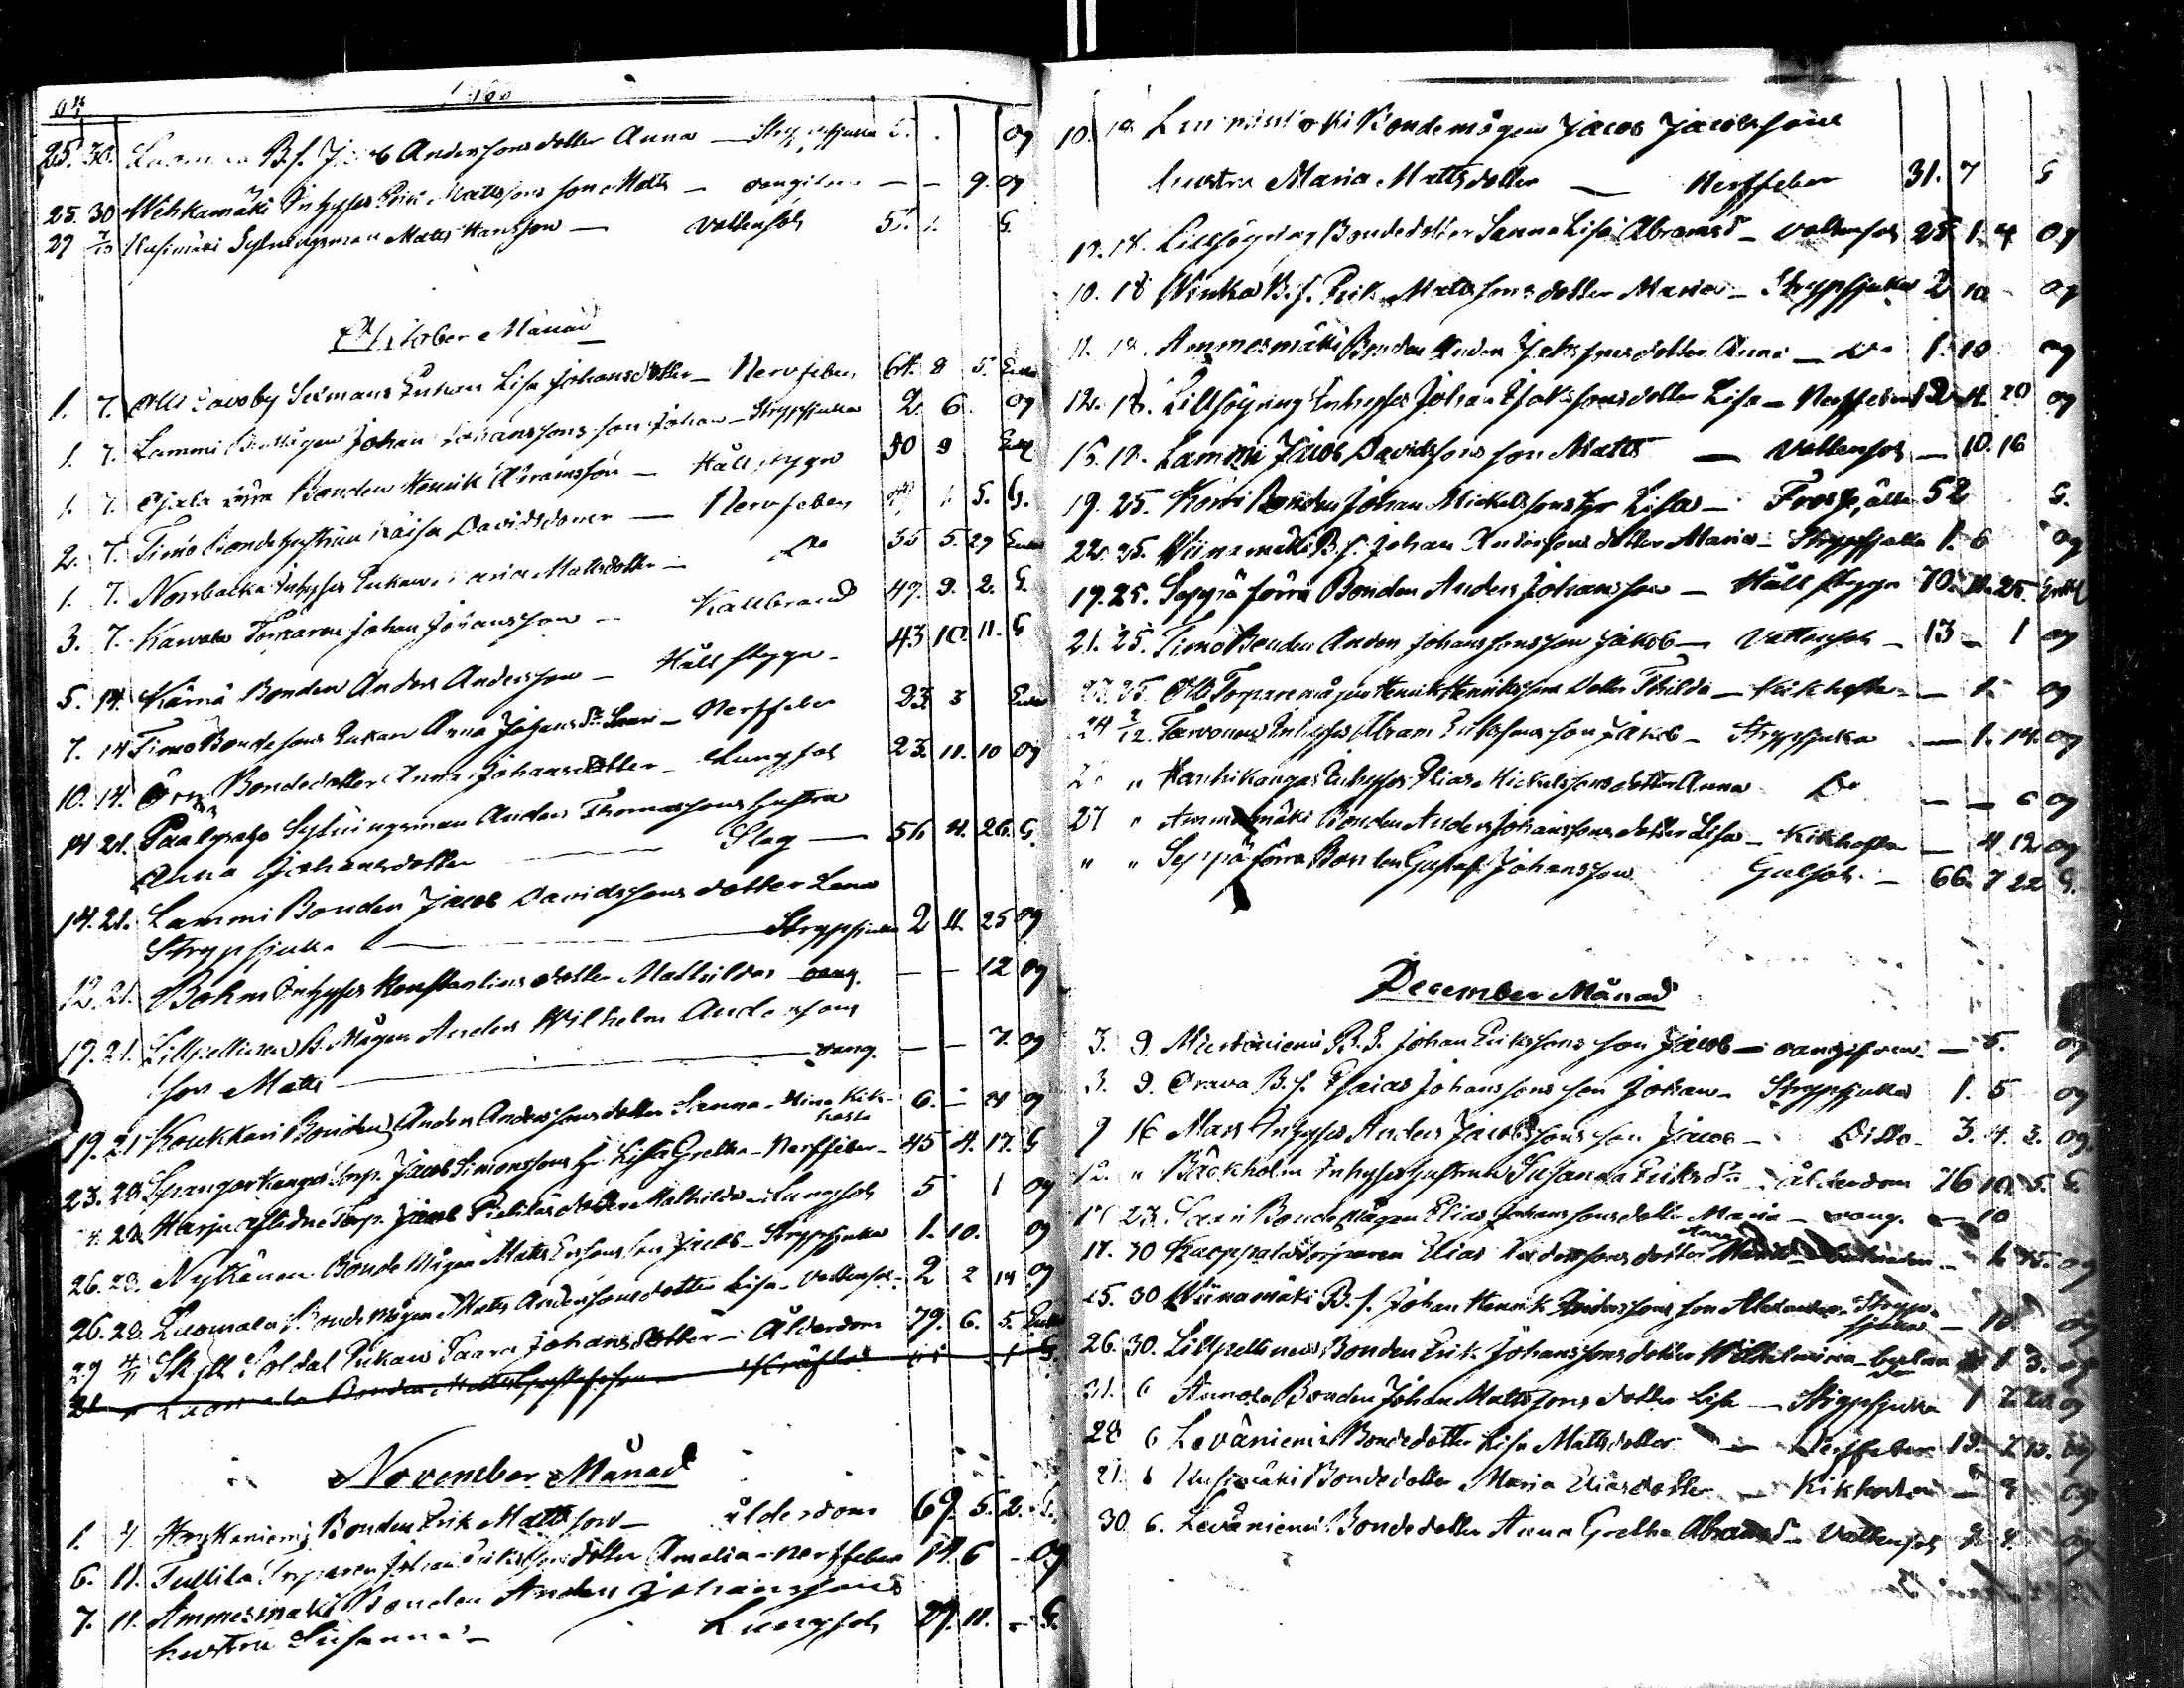 1860
25. 30. B.s. Jacob Anderssons dotter Anna — Strypsjuka 5. og
25. 30 Wehkamäki Inhyses Erik Mattssons son Matts — oangifven — — 9. og
29 7/10 Kusimäki Sytningsman Matts Hansson — Vattensot 51. G.
October Månad
1. 7. Lassby Sexmans Enkan Lisa Johansdotter — Nervfeber 64. 8 5. Enka
1. 7. Lammi Bondemågen Johan Johanssons son Johan — Strypsjuka 2 6. og
1. 7. Ojala förra Bonden Henrik Abramsson — Håll stygn 50 9 Enkl
2. 7. Timo Bondehustrun Kaisa Davidsdotter — Nervfeber 1. 5. G.
1. 7. Norrbacka Inhyses Enkan Maria Mattsdotter — Do 55 5. 29 Enka
3. 7. Karvala Torparen Johan Johansson — Kallbrand 49. 9. 2. G.
5. 14. Kärnä Bonden Anders Andersson — Håll stygn — 43 10. 11. G
7. 14 Timo Bondesons Enkan Anna Johansdr — Nerffeber 23. 3 Enka
10. 14. Bondedotter Anna Johansdotter — Lungsot 23. 11. 10 og
14 21. Sytningsman Anders Thomassons hustru
Anna Johansdotter — Slag — 56 4. 26. G.
14. 21. Lammi Bonden Jacob Davidssons dotter Lena
Strypsjuka — Strypsjuka 2 11. 25 og
12. 21. Böhm Inhyses Konstantins dotter Mathilda — oang. — — 12 og
19. 21. Lillpellinen B. Mågen Anders Wilhelm Anderssons
son Matts — oang. — — 7. og
19. 21 Koukkari Bonden Anders Anderssons dotter Sanna — Kik-
hosta 6. — 21 og
23. 28. Spangarkangas Torp. Jacob Simonssons Hu Lisa Gretha — Nerffeber — 45 4. 17. G
28. Harju aflidne Torp. Jacob dotter Mathilda — Lungsot 5 1 og
26. 28. Nykänen Bonde Mågen Matts Erssons son Jacob — Strypsjuka 1. 10. og
26. 28. Luomala Bonde Mågen Matts Anderssons dotter Lisa — Vattensot — 2 2 14 og
29 4/11 Sköld Soldat Enkan Saara Johansdotter — Ålderdom 79. 6. 5. Enka
21 " Luomala Bonden Matts Gustafsson — Kräfta 1 G.
November Månad
1. 4. Bonden Erik Mattsson — ålderdom 69. 5. 2. G.
6. 11. Tullila Torparen Johan Erikssons dotter Amalia — nerffeber 14 6 — og
7. 11. Ammesmäki Bonden Anders Johanssons
hustru Susanna — Lungsot 29. 11. — G.
10. 18 Bondemågen Jacob Jacobssons
hustru Maria Mattsdotter — Nerffeber 31. 7 G
18. Lillsöyring Bondedotter Sanna Lisa Abramsd — Vattensot 28 1. 4 og
10. 18 Winka B.s. Erik Mattssons dotter Maria — Strypsjuka 2 10 — og
11. 18. Ammesmäki Bonden Anders Johssons dotter Anna — Do 1. 10 og
12. 18. Lillsöyring Inhyses Johan Isakssons dotter Lisa — Nerffeber 12 4. 20 og
15. 18. Lammi Jacob Davidssons son Matts — Vattensot — 10. 16
19. 25. Bonden Johan Mickelssons Lisa — 52 G.
22. 25. Wiinamäki B.s. Johan Anderssons dotter Maria — Strypsjuka 1. 6 og
19. 25. Seppä förra Bonden Anders Johansson — Håll stygn 70. 11. 25. Enkl
21. 25. Timo Bonden Anders Johanssons son Jakob — Vattensot — 13 — 1 og
23. 25. Torparemågen Henrik Henrikssons Dotter Thilda — Kikhosta — — 1. og
24 2/12. Tarvonen Inhyses Abram Erikssons son Jakob — Strypsjuka — 1. 14. og
" Hanhikangas Inhyses Elias Mickelssons dotter Anna Do — — 6 og
27 " Ammesmäki Bonden Anders Johanssons dotter Lisa — Kikhosta — 4 12 og
" " Seppä förra Bonden Gustaf Johansson Gulsot — 66. 7 22 G.
December Månad
3. 9. Murtoniemi B.S. Johan Erikssons son Jacob — oangifven — — 5. og
3. 9. Orava B.s. Esaias Johanssons son Johan — Strypsjuka 1. 5 og
9 16 Mars Inhyses Anders Jacobssons son Jacob — Ditto — 3. 4. 3. og
12. " Bäckholm Inhyses hustrun Susanna Eriksdr — ålderdom 76 10. 5. G.
23. Saari Bonde Mågen Elias Johanssons dotter Maria — oang. — 10
17. 30 Kaoppala Torparen Elias Anderssons dotter Anna — og
25. 30 Wiinamäki B.s. Johan Henrik Anderssons son Alexander — Stryp-
sjuka — 10 og
26. 30. Lillpellinen Bonden Erik Johanssons dotter Wilhelmina — 1 3. og
31. 6 Annola Bonden Johan Mattssons dotter Lisa — Strypsjuka 1 og
28 6 Leväniemi Bondedotter Lisa Mattsdotter — Nerffeber 19. og
21. 6 Kusimäki Bondedotter Maria Eliasdotter — Kikhosta — 9 og
30. 6. Leväniemi Bondedotter Anna Gretha Abramsd — Vattensot 9. 4. og